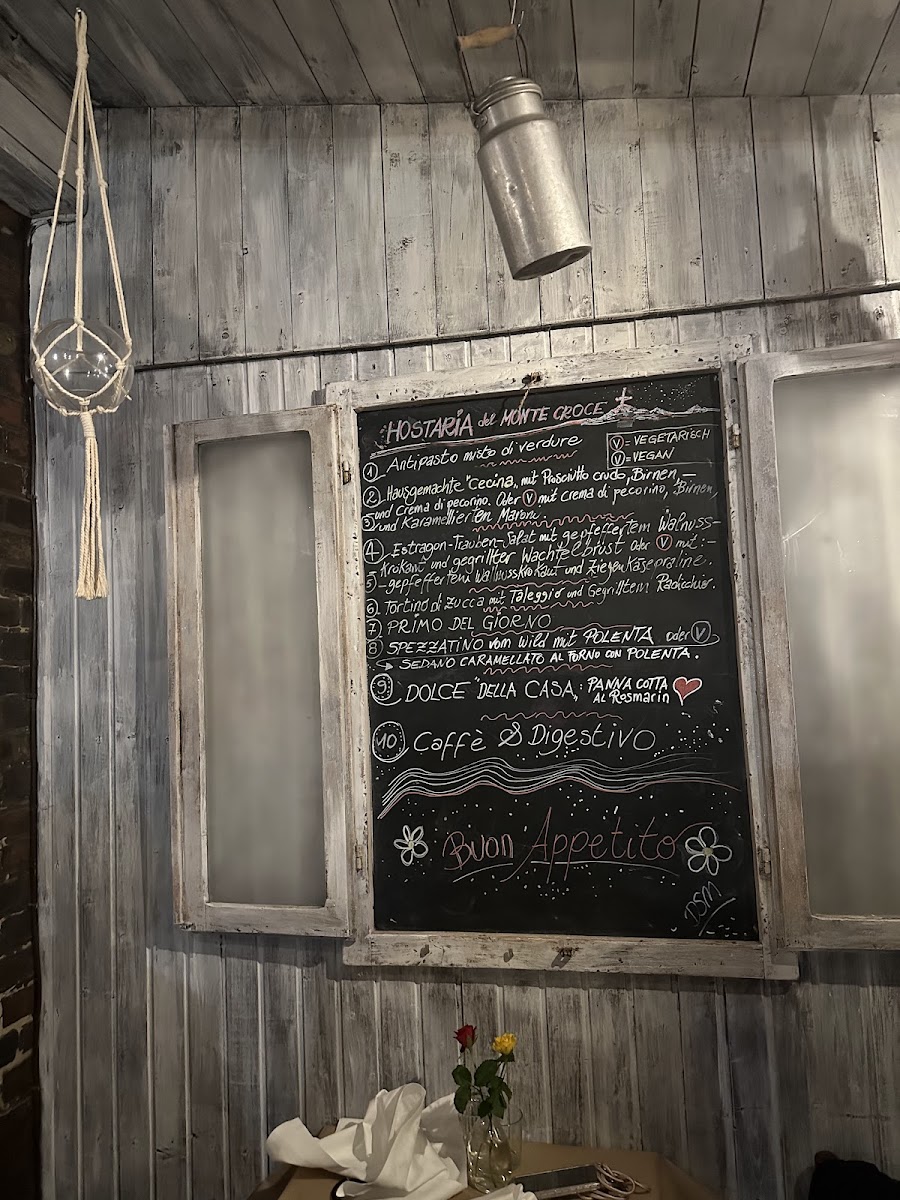 HOSTARIA del MONTE CROCE
Ⓥ = VEGETARISCH
Ⓥ = VEGAN
① Antipasto misto di verdure
② Hausgemachte "Cecina" mit Prosciutto crudo, Birnen,
und Crema di pecorino. Oder Ⓥ mit crema di pecorino, Birnen,
③ und Karamellierten Maroni.
④ Estragon-Trauben-Salat mit gepfeffertem Walnuss-
-Krokant und gegrillter Wachtelbrust Oder Ⓥ mit:-
⑤ -gepfeffertem Walnusskrokant und Ziegenkäsepraline.
⑥ Tortino di zucca mit Taleggio und Gegrilltem Radicchio.
⑦ PRIMO DEL GIORNO
⑧ SPEZZATINO vom Wild mit POLENTA oder Ⓥ
→ SEDANO CARAMELLATO AL FORNO CON POLENTA.
⑨ DOLCE "DELLA CASA": PANNA COTTA
AL Rosmarin
⑩ Caffè & Digestivo
Buon Appetito
DSM